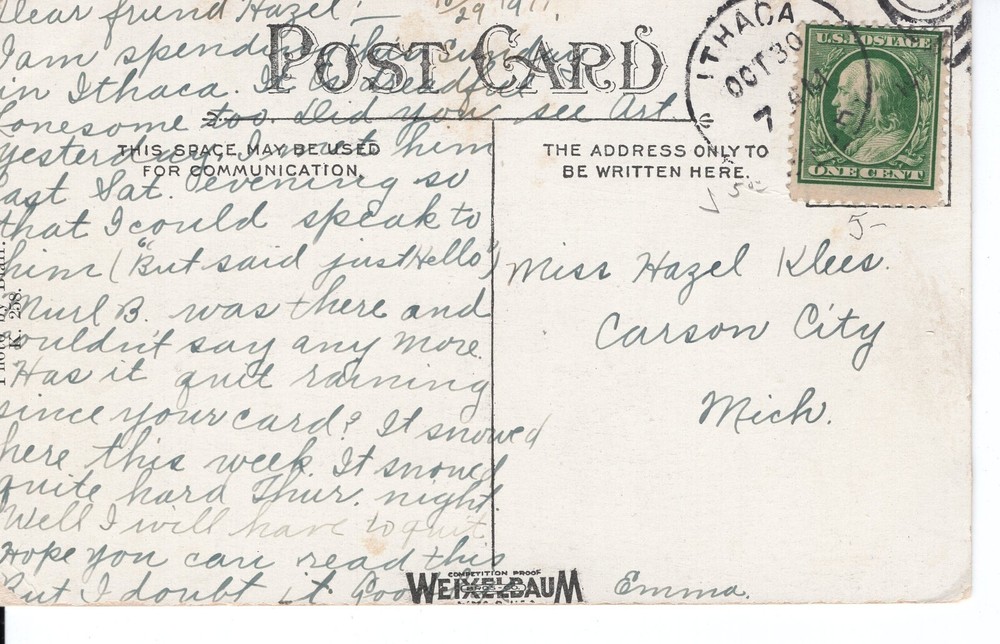 Dear friend Hazel:—
10/29 1911.
I am spending this Sunday
in Ithaca. It is
lonesome too. Did you see Art
yesterday, I met him
last Sat. evening so
that I could speak to
him ("But said just Hello")
Murl B. was there and
couldn't say any more.
Has it quit raining
since your card? It snowed
here this week. It snowed
quite hard Thur. night.
Well I will have to quit
Hope you can read this
But I doubt it Goo
Emma.
POST CARD
THIS SPACE MAY BE USED
FOR COMMUNICATION.
THE ADDRESS ONLY TO
BE WRITTEN HERE.
ITHACA
OCT 30
7 AM
U.S. POSTAGE
ONE CENT
5-
Miss Hazel Klees.
Carson City
Mich.
K. 258.
COMPETITION PROOF
WEIXELBAUM